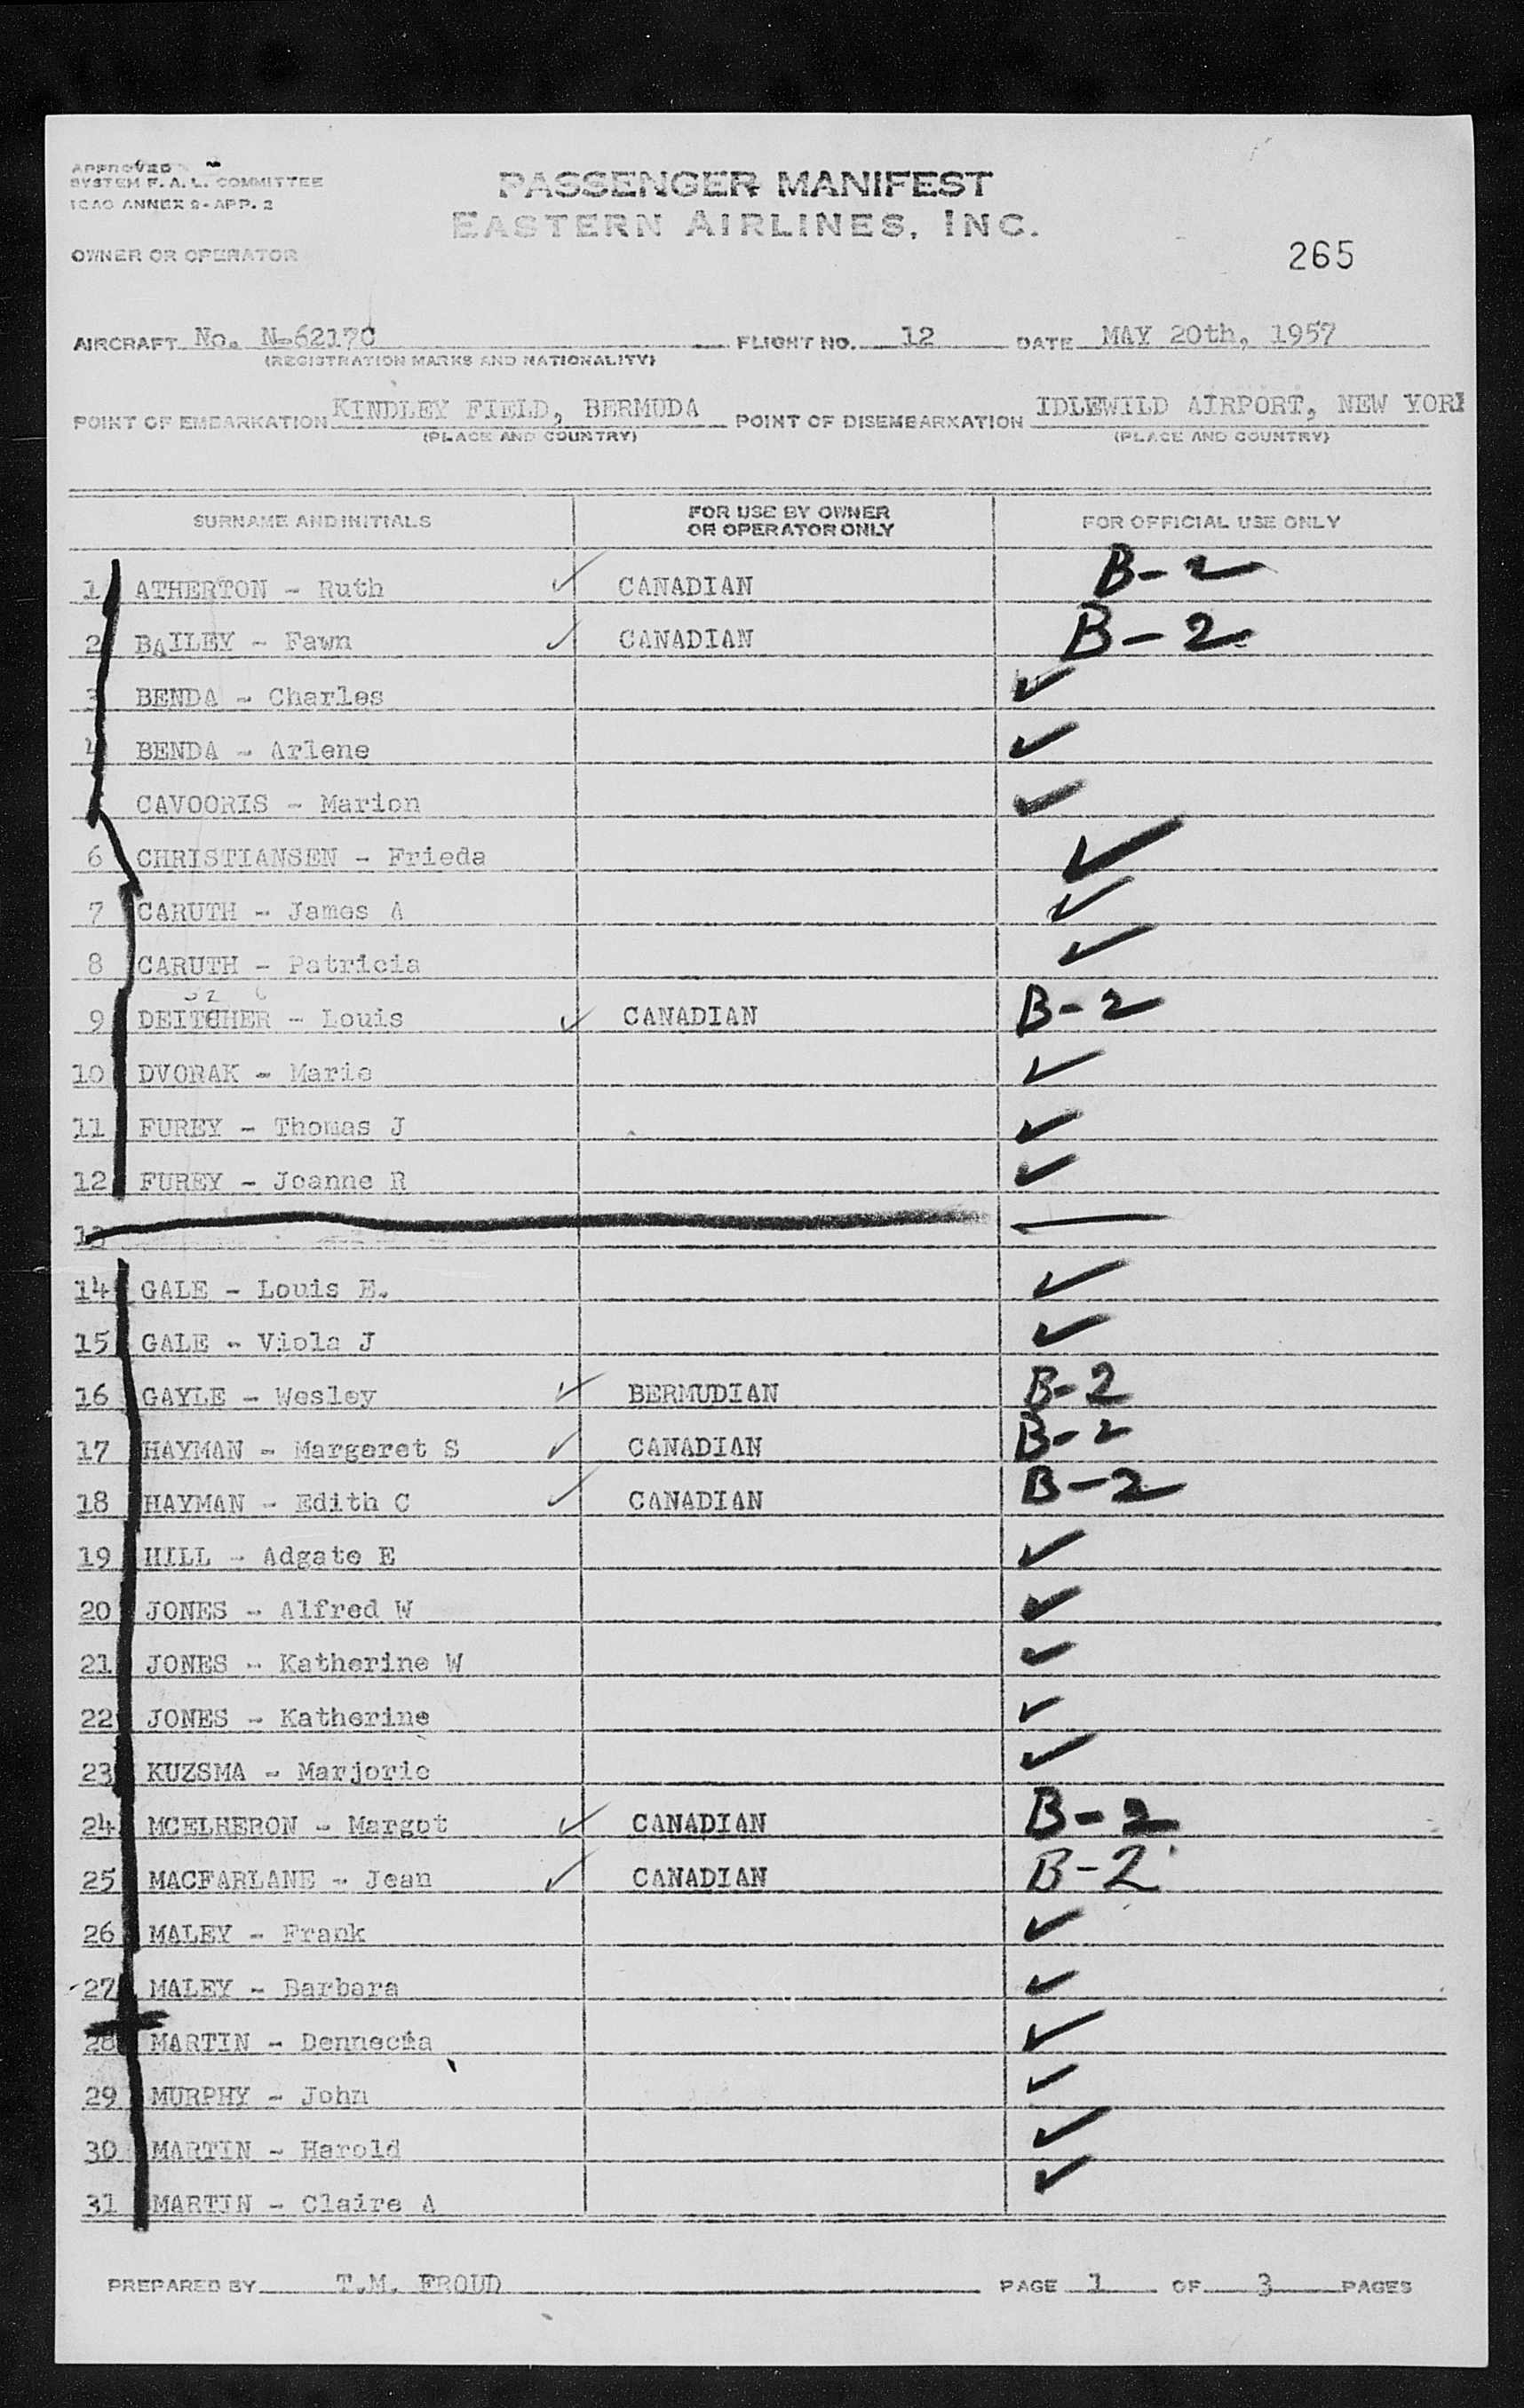 APPROVED
SYSTEM F. A. L. COMMITTEE
ICAO ANNEX 9-APP. 2
PASSENGER MANIFEST
EASTERN AIRLINES, INC.
OWNER OR OPERATOR
265
AIRCRAFT No. N-6217C FLIGHT NO. 12 DATE MAY 20th, 1957
(REGISTRATION MARKS AND NATIONALITY)
POINT OF EMBARKATION KINDLEY FIELD, BERMUDA POINT OF DISEMBARKATION IDLEWILD AIRPORT, NEW YORK
(PLACE AND COUNTRY) (PLACE AND COUNTRY)
SURNAME AND INITIALS FOR USE BY OWNER OR OPERATOR ONLY FOR OFFICIAL USE ONLY
1 ATHERTON - Ruth ✓ CANADIAN B-2
2 BAILEY - Fawn ✓ CANADIAN B-2
3 BENDA - Charles ✓
4 BENDA - Arlene ✓
CAVOORIS - Marion ✓
6 CHRISTIANSEN - Frieda ✓
7 CARUTH - James A ✓
8 CARUTH - Patricia ✓
9 DEITCHER - Louis ✓ CANADIAN B-2
10 DVORAK - Marie ✓
11 FUREY - Thomas J ✓
12 FUREY - Joanne R ✓
13
14 GALE - Louis E. ✓
15 GALE - Viola J ✓
16 GAYLE - Wesley ✓ BERMUDIAN B-2
17 HAYMAN - Margaret S ✓ CANADIAN B-2
18 HAYMAN - Edith C ✓ CANADIAN B-2
19 HILL - Adgate E ✓
20 JONES - Alfred W ✓
21 JONES - Katherine W ✓
22 JONES - Katherine ✓
23 KUZSMA - Marjorie ✓
24 MCELHERON - Margot ✓ CANADIAN B-2
25 MACFARLANE - Jean ✓ CANADIAN B-2
26 MALEY - Frank ✓
27 MALEY - Barbara ✓
28 MARTIN - ✓
29 MURPHY - John ✓
30 MARTIN - Harold ✓
31 MARTIN - Claire A ✓
PREPARED BY T.M. FROUD PAGE 1 OF 3 PAGES